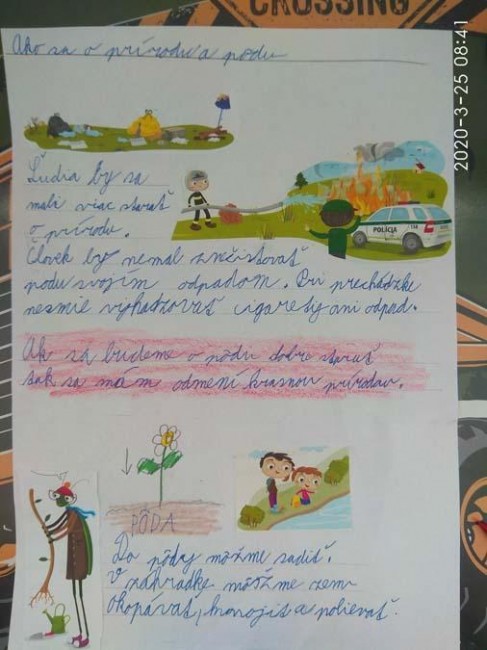 CROSSING
2020-3-25 08:41
Ako sa o prírodu a pôdu
Ľudia by sa
mali viac starať
o prírodu.
POLÍCIA
Človek by nemal znečisťovať
podu svojím odpadom. Pri prechádzke
nesmie vyhadzovať cigarety ani odpad.
Ak sa budeme o pôdu dobre starať
tak sa nám odmení krasnou prírodou.
PÔDA
Do pôdy môžme sadiť.
V záhradke môžme zem
okopávať, hnojiť a polievať.